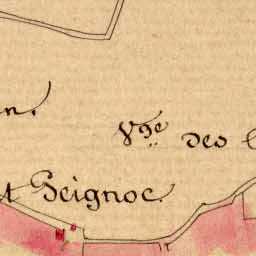 n.
Vge des
t Seignoc.